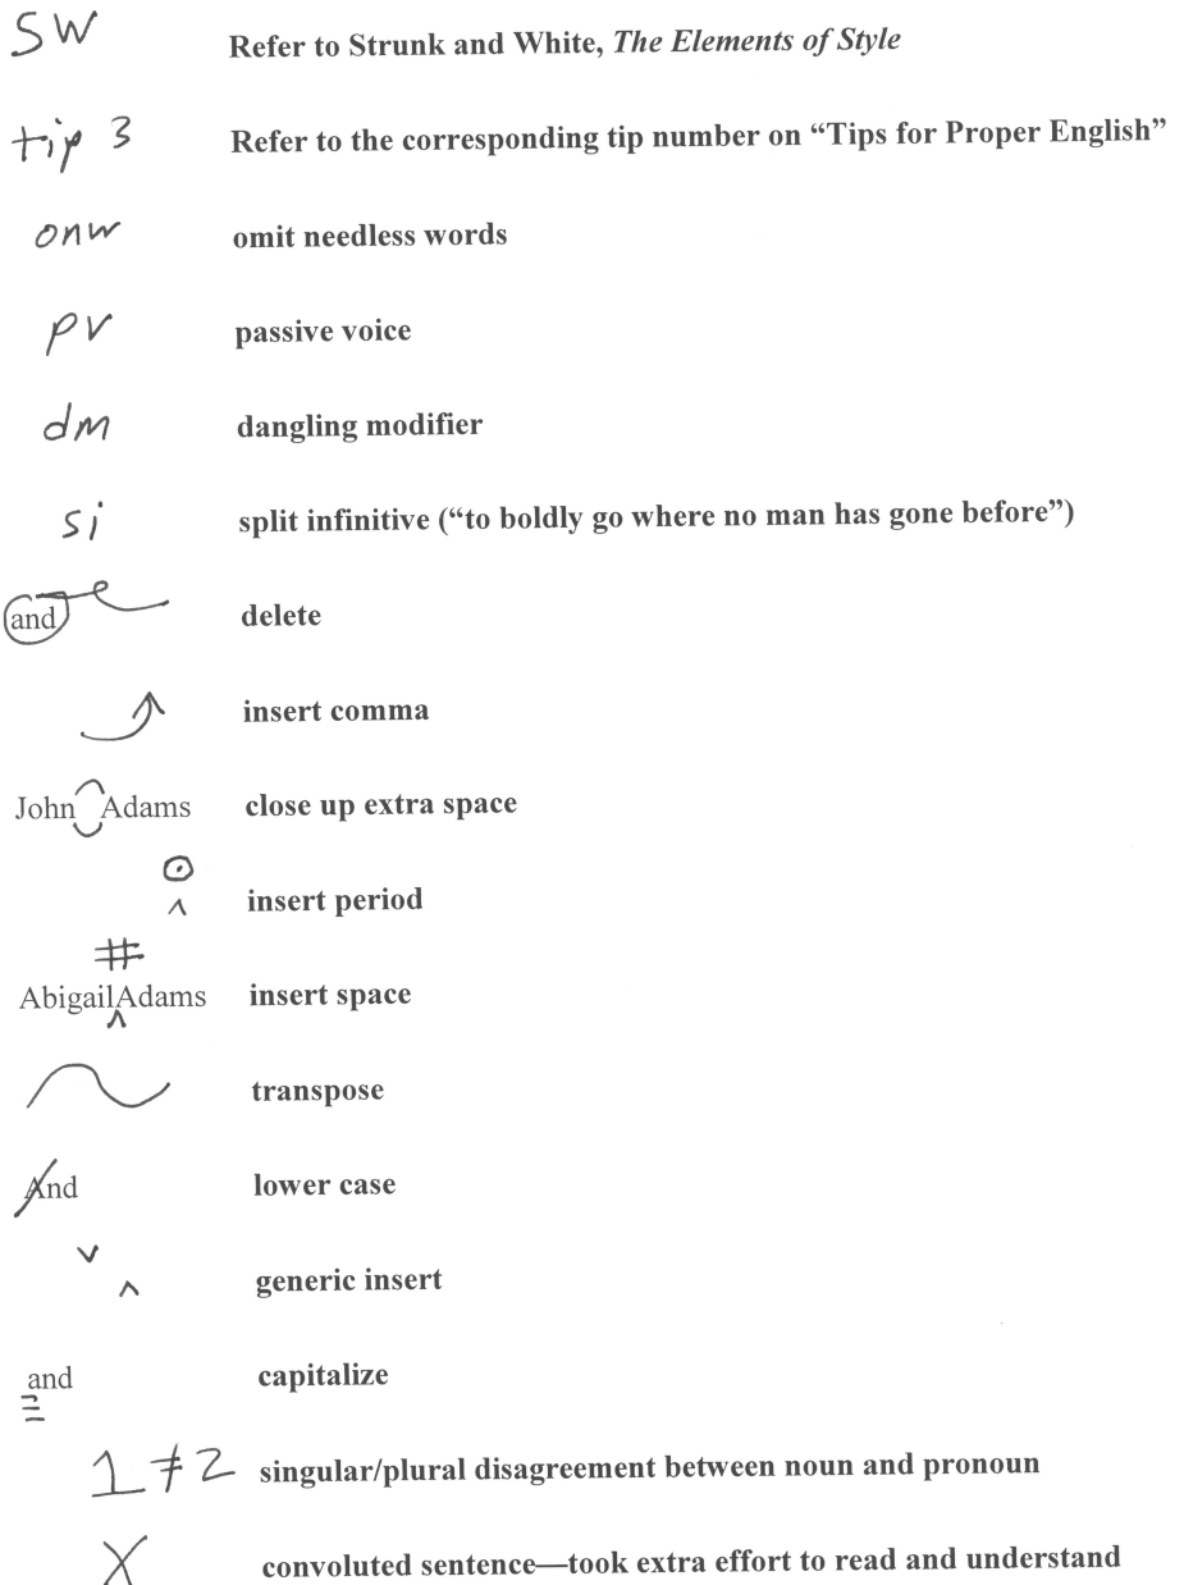 SW Refer to Strunk and White, The Elements of Style
tip 3 Refer to the corresponding tip number on “Tips for Proper English”
onw omit needless words
pv passive voice
dm dangling modifier
si split infinitive (“to boldly go where no man has gone before”)
and delete
insert comma
John Adams close up extra space
insert period
#
AbigailAdams insert space
transpose
And lower case
generic insert
and capitalize
1 ≠ 2 singular/plural disagreement between noun and pronoun
X convoluted sentence—took extra effort to read and understand